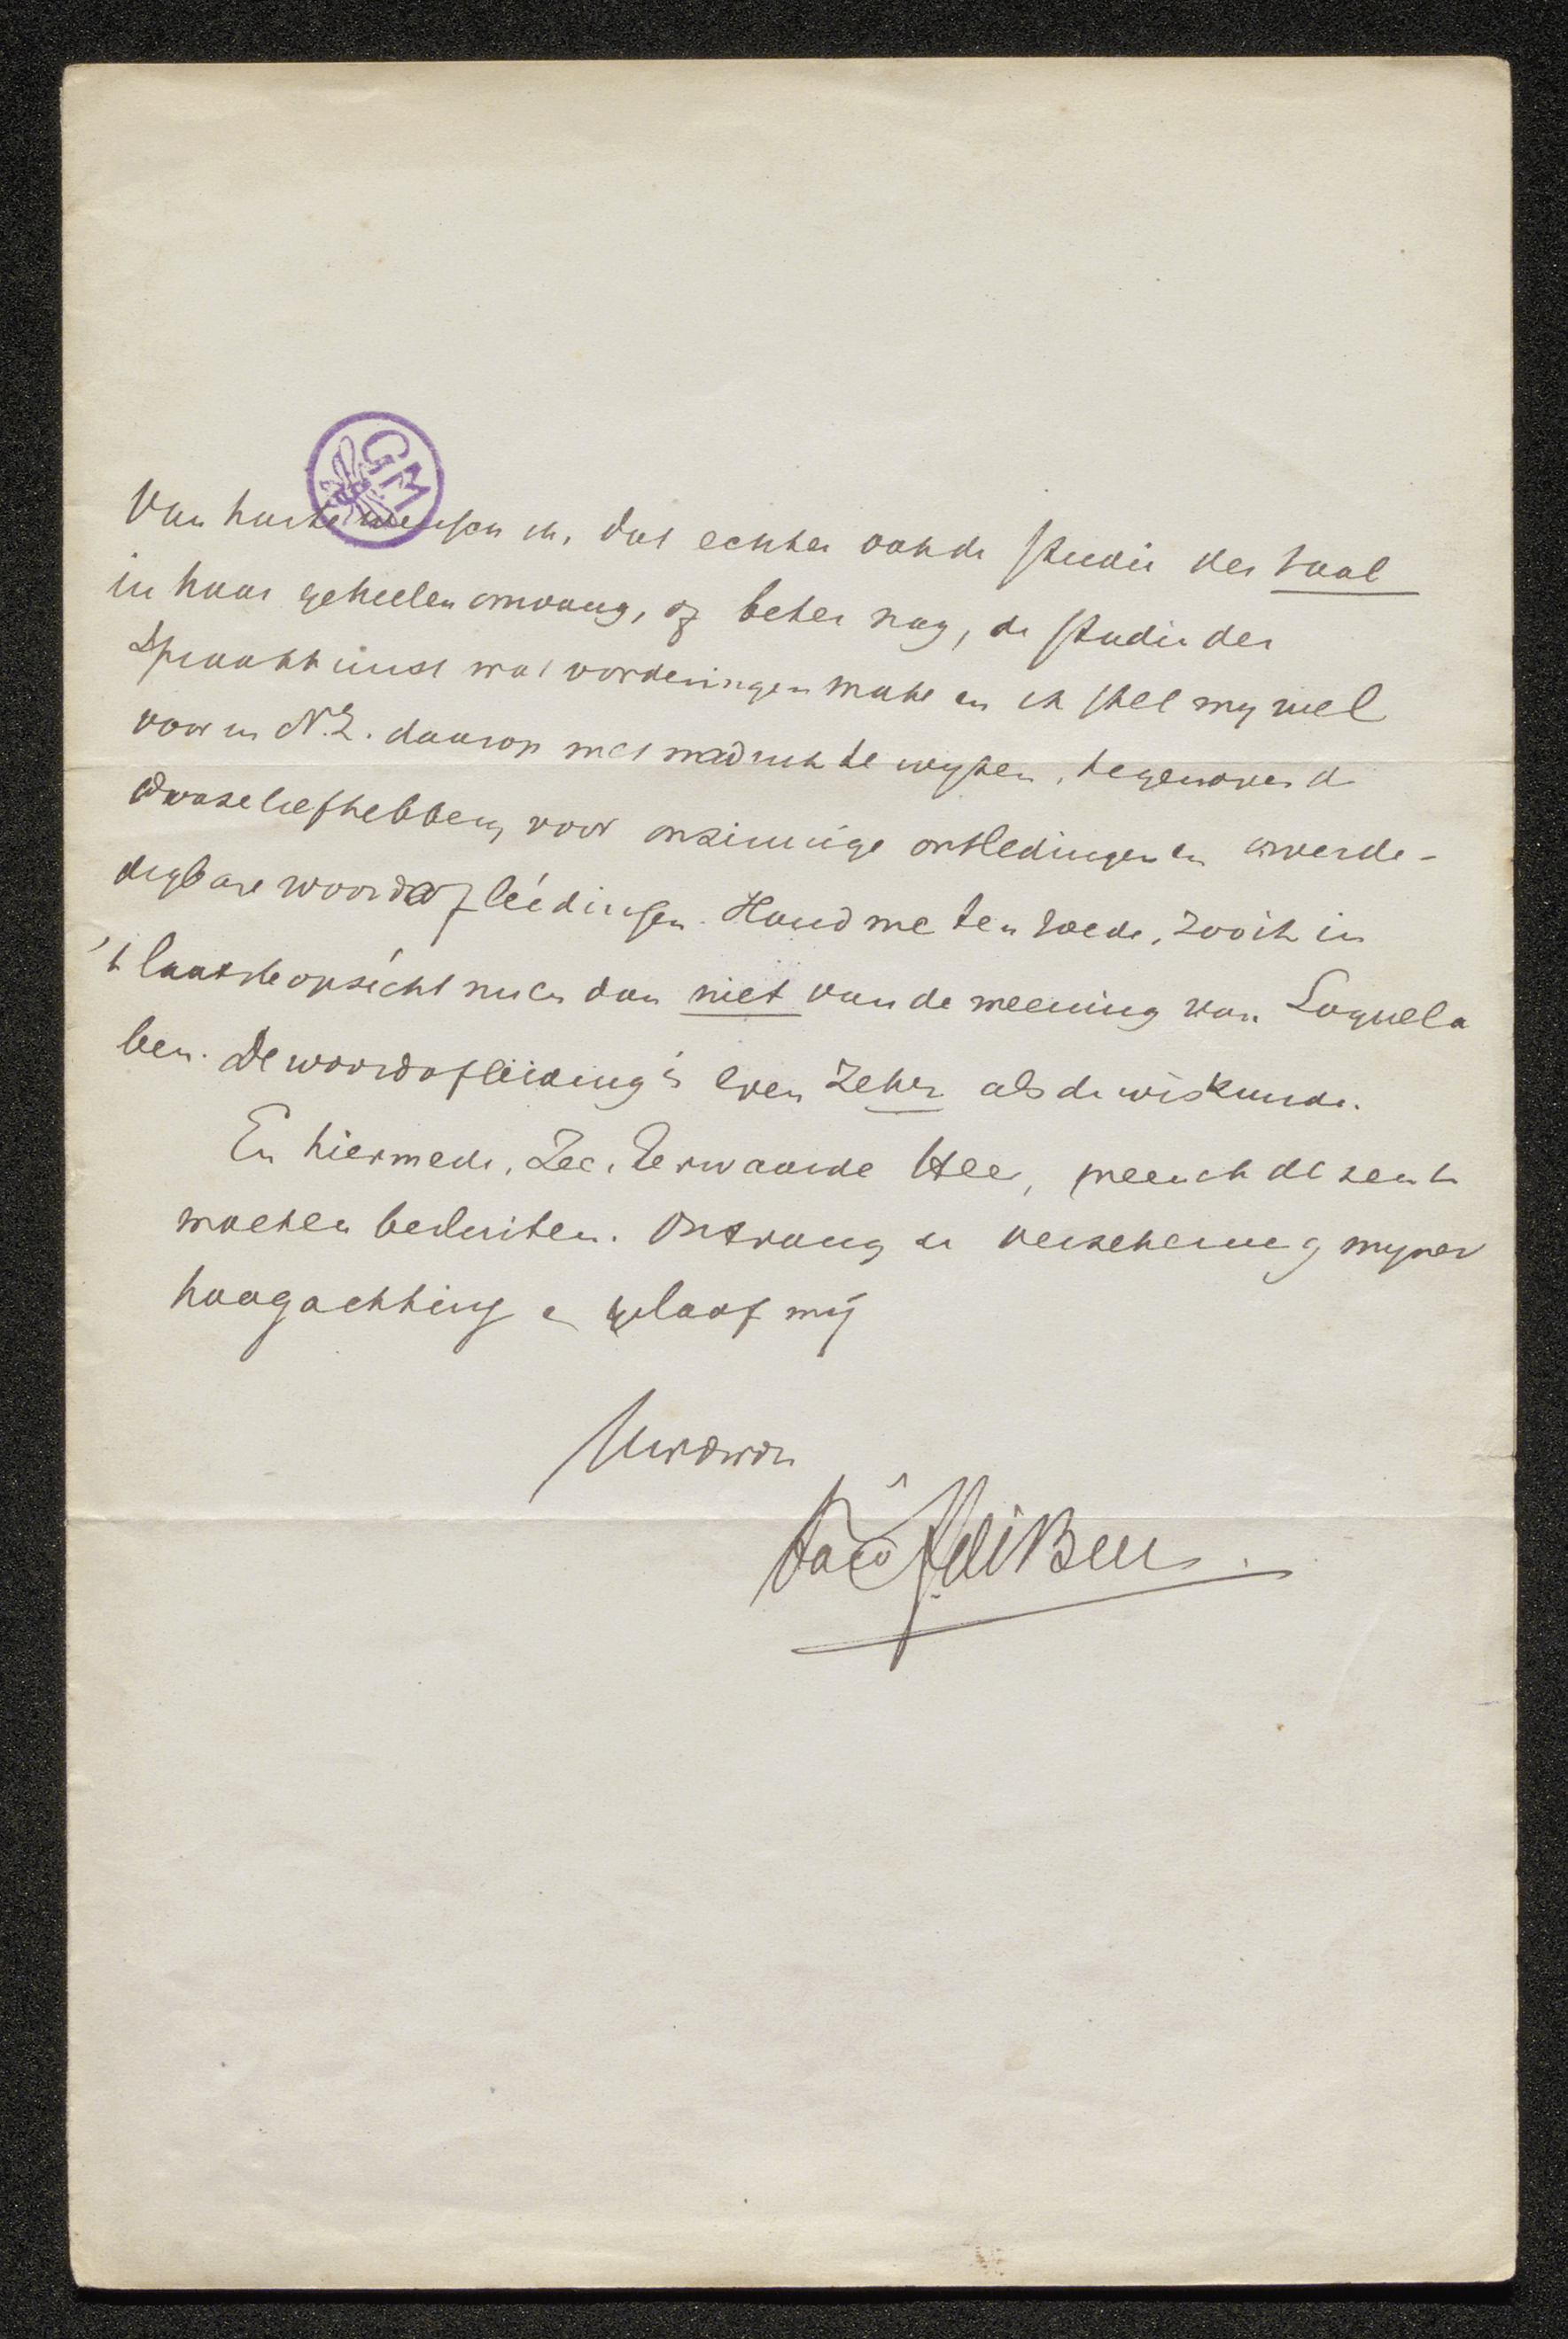 GM
Van harte wensch ik, dat echter ook de studie der taal
in haar geheelen omvang, of beter nog, de studie der
Spraakkunst wat vorderingen make en ik stel my wel
voor in N.Z. daarop met nadruk te wyzen, tegenover de
dwaze liefhebbery voor onzinnige ontledingen en onverde-
digbare woordafleidingen. Houd me ten goede, zoo ik in
't laatste opzicht meer dan niet van de meening van Loquela
ben. De woordafleiding is even zeker als de wiskunde.
En hiermede, Zeer Eerwaarde Heer, meen ik dezen te
moeten besluiten. Ontvang de verzekering myner
hoogachting en geloof mij
Uw dwdn
Taco H de Beer.